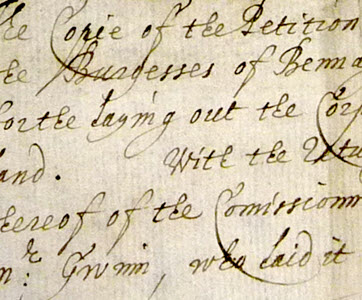 the Copie of the Petition
the Burgesses of Benna
for the laying out the Corp
land. With the Retu
thereof of the Comission
mr: Gwin, who laid it